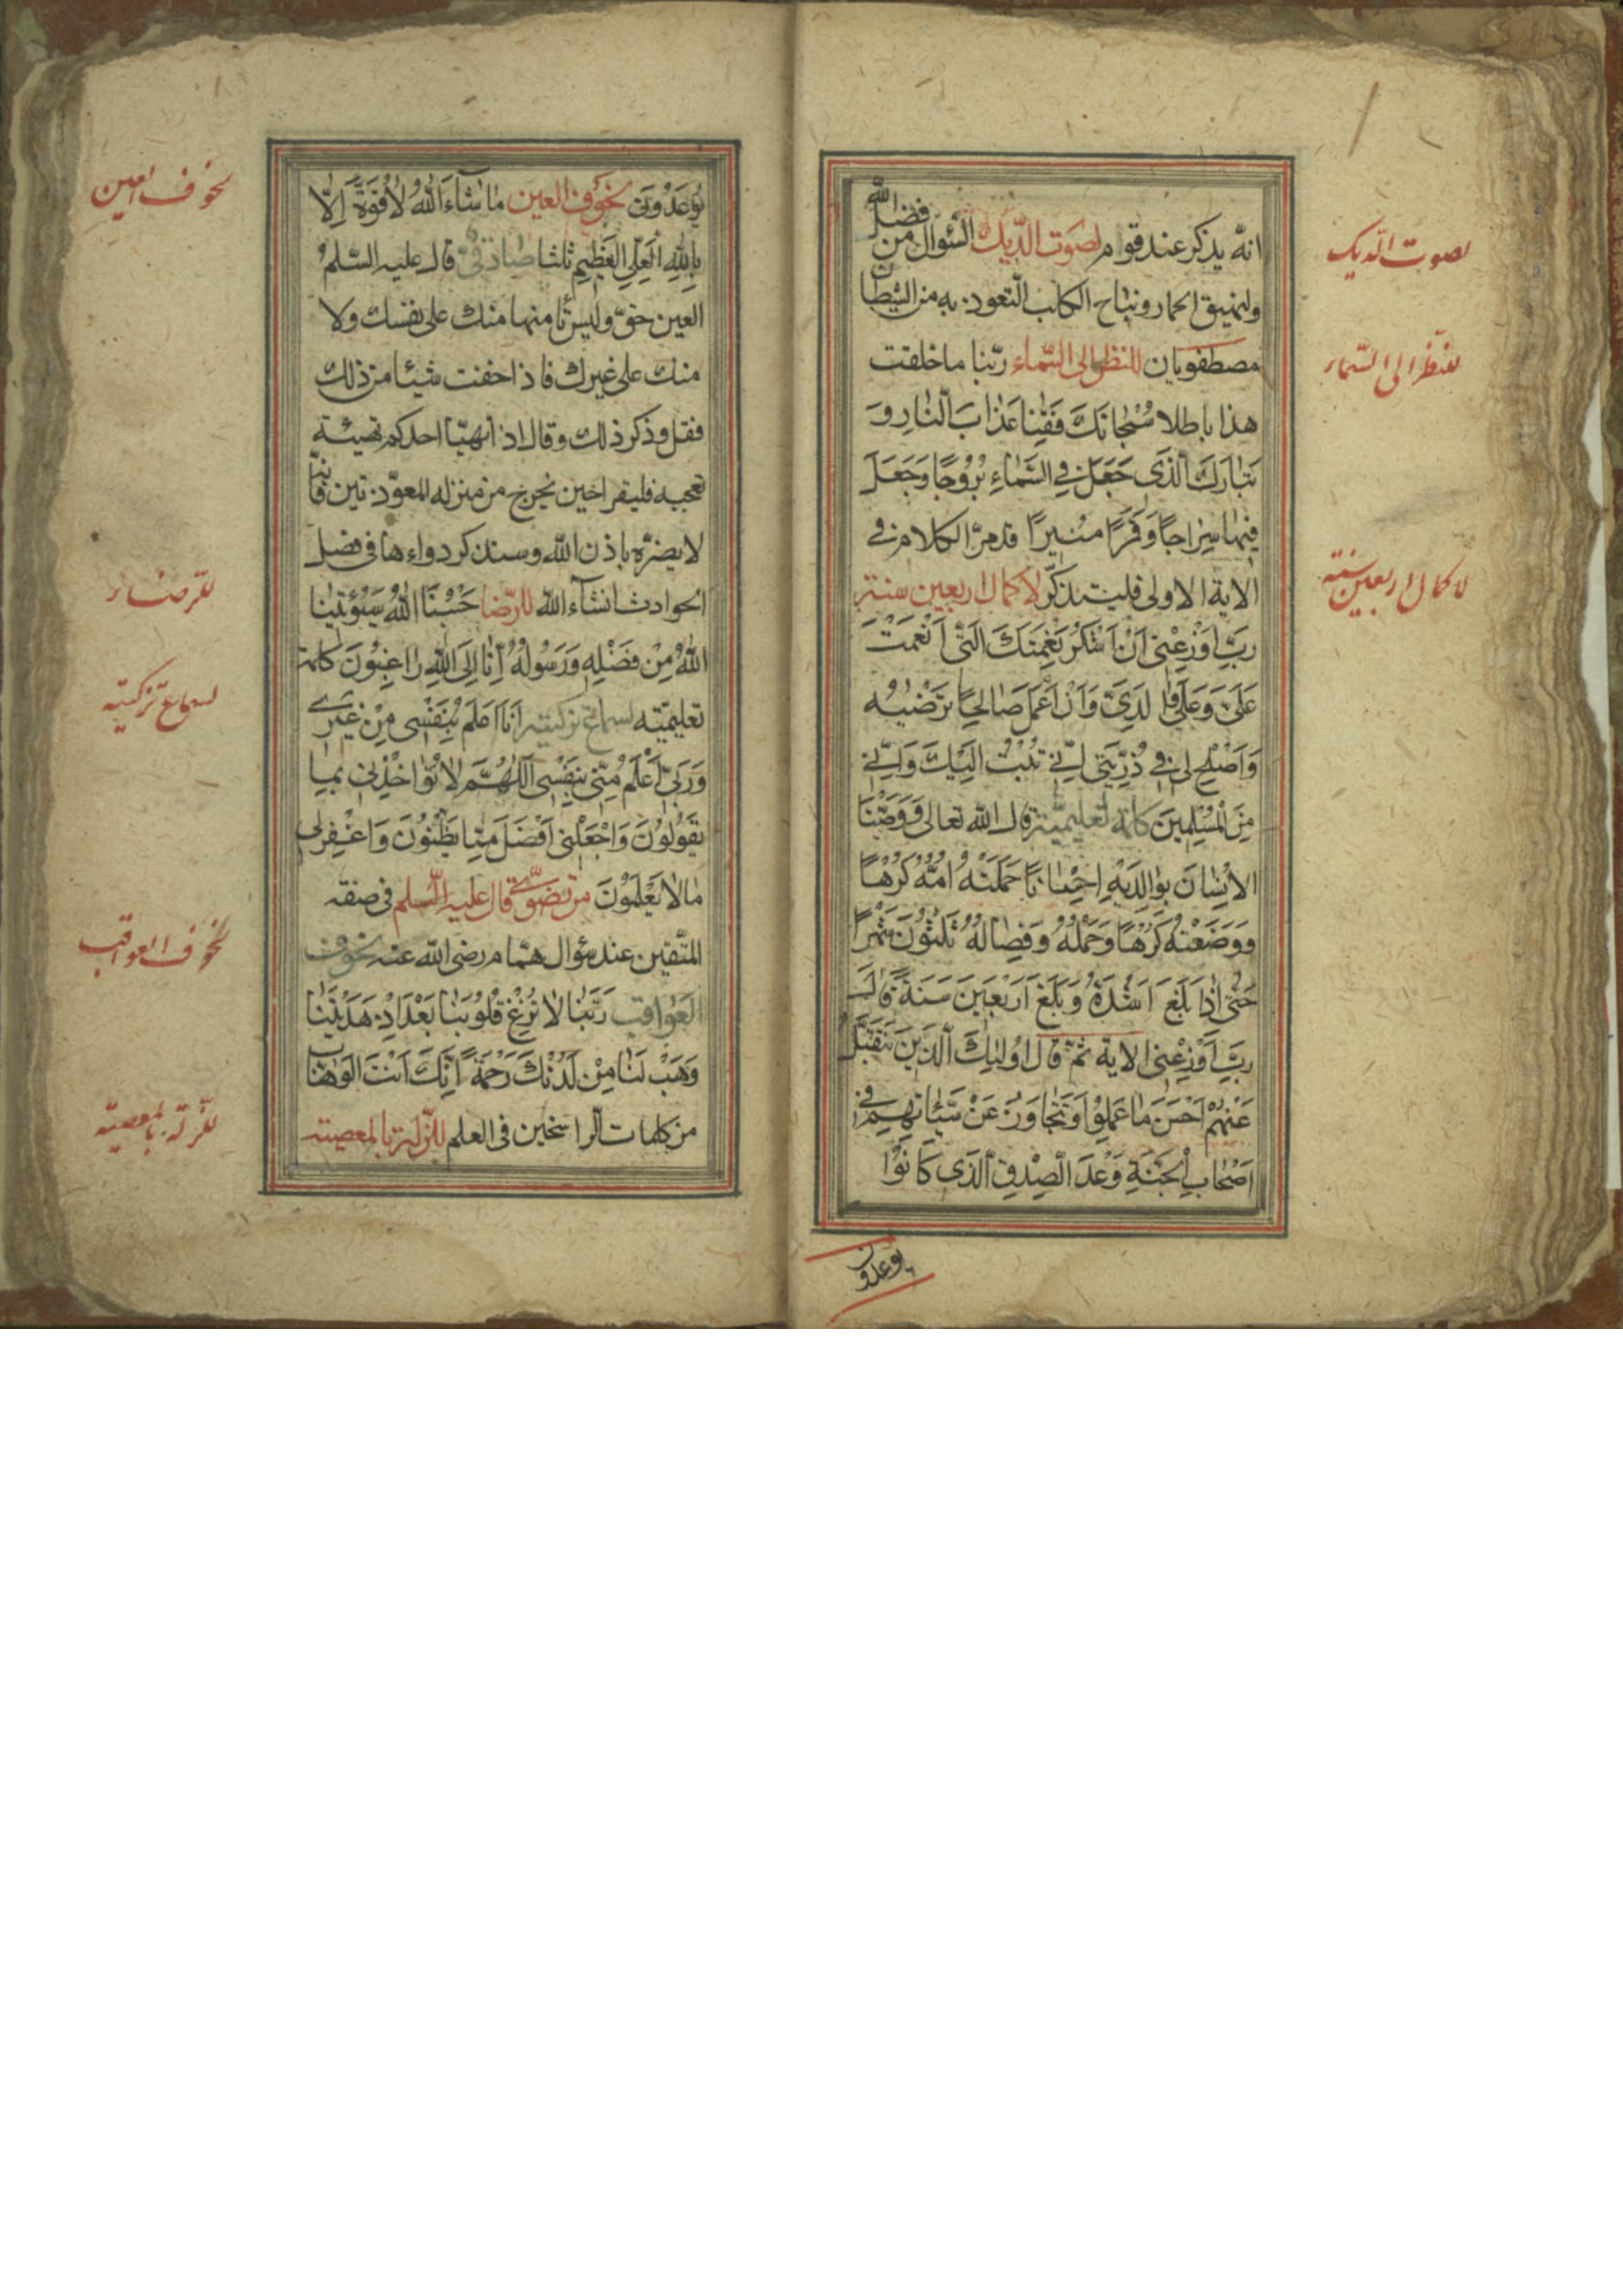 لصوت الديك
للنظر الى السماء
لاكمال اربعين سنة
انّه يذكر عند قوام لصَوت الدّيك السُّوال من فضل الله
ولنهيق الحمار ونباح الكلب التعوذ به من الشيطان
مصطفويان للنظر الى السّماء ربّنا ما خلقت
هذا باطلا سُبْحَانَكَ فَقِنَا عَذَابَ النَّارِ وَ
تَبَارَكَ الَّذِى جَعَلَ فِي السَّمَاءِ بُرُوْجًا وَجَعَلَ
فِيْهَا سِرَاجًا وَقَمَرًا مُنِيرًا قد مرّ الكلام في
الاية الاولى فليتذكّر لاكمال اربعين سنة
رَبِّ اَوْزِعْنِى اَنْ اَشْكُرَ نِعْمَتَكَ الَّتِى اَنْعَمْتَ
عَلَىَّ وَعَلَى وَالِدَىَّ وَاَنْ اَعْمَلَ صَالِحًا تَرْضٰيهُ
وَاَصْلِحْ لِى فِي ذُرِّيَّتِى اِنِّي تُبْتُ اِلَيْكَ وَاِنِّي
مِنَ الْمُسْلِمِينَ كلمة تعليميّة قال الله تعالى وَوَصَّيْنَا
الْاِنْسَانَ بِوَالِدَيْهِ اِحْسَانًا حَمَلَتْهُ اُمُّهُ كُرْهًا
وَوَضَعَتْهُ كُرْهًا وَحَمْلُهُ وَفِصَالُهُ ثَلٰثُوْنَ شَهْرًا
حَتّٰى اِذَا بَلَغَ اَشُدَّهُ وَبَلَغَ اَرْبَعِينَ سَنَةً قَالَ
رَبِّ اَوْزِعْنِى الاية ثمّ قال اُولٰئِكَ الَّذِينَ نَتَقَبَّلُ
عَنْهُمْ اَحْسَنَ مَا عَمِلُوْا وَنَتَجَاوَزُ عَنْ سَيِّئَاتِهِمْ فِي
اَصْحَابِ الْجَنَّةِ وَعْدَ الصِّدْقِ الَّذِى كَانُوْا
يوعدون
لخوف العين
للرضاء
لسماع تزكيته
لخوف العواقب
للزلة بالمعصية
يُوْعَدُوْنَ لخوف العين مَا شَاءَ اللهُ لَا قُوَّةَ اِلَّا
بِاللهِ الْعَلِيِّ الْعَظِيمِ ثلثا صادقىّ قال عليه السّلم
العين حقّ وليس تامنها منك على نفسك ولا
منك على غيرك فاذا خفت شيئا من ذلك
فقل وذكر ذلك وقال اذا تهيّا احدكم تهيئة
تعجبه فليقرا حين يخرج من منزله المعوّذتين فانّه
لا يضرّه باذن الله وسنذكر دواءها فى فصل
الحوادث انشآء الله للرّضا حَسْبُنَا اللهُ سَيُؤْتِينَا
اللهُ مِنْ فَضْلِهِ وَرَسُولُهُ اِنَّا اِلَى اللهِ رَاغِبُوْنَ كلمة
تعليميّة لسماع تزكيته اَنَا اَعْلَمُ بِنَفْسِى مِنْ غَيْرِي
وَرَبِّي اَعْلَمُ مِنِّى بِنَفْسِى اَللّٰهُمَّ لَا تُؤَاخِذْنِى بِمَا
يَقُوْلُوْنَ وَاجْعَلْنِى اَفْضَلَ مِمَّا يَظُنُّوْنَ وَاغْفِرْلِى
مَا لَا يَعْلَمُوْنَ مرتضوىّ قال عليه السّلم فى صفة
المتّقين عند سؤال همّام رضى الله عنه لخوف
العواقب رَبَّنَا لَا تُزِغْ قُلُوْبَنَا بَعْدَ اِذْ هَدَيْتَنَا
وَهَبْ لَنَا مِنْ لَدُنْكَ رَحْمَةً اِنَّكَ اَنْتَ الْوَهَّابُ
من كلمات الراسخين فى العلم للزّلة بالمعصية